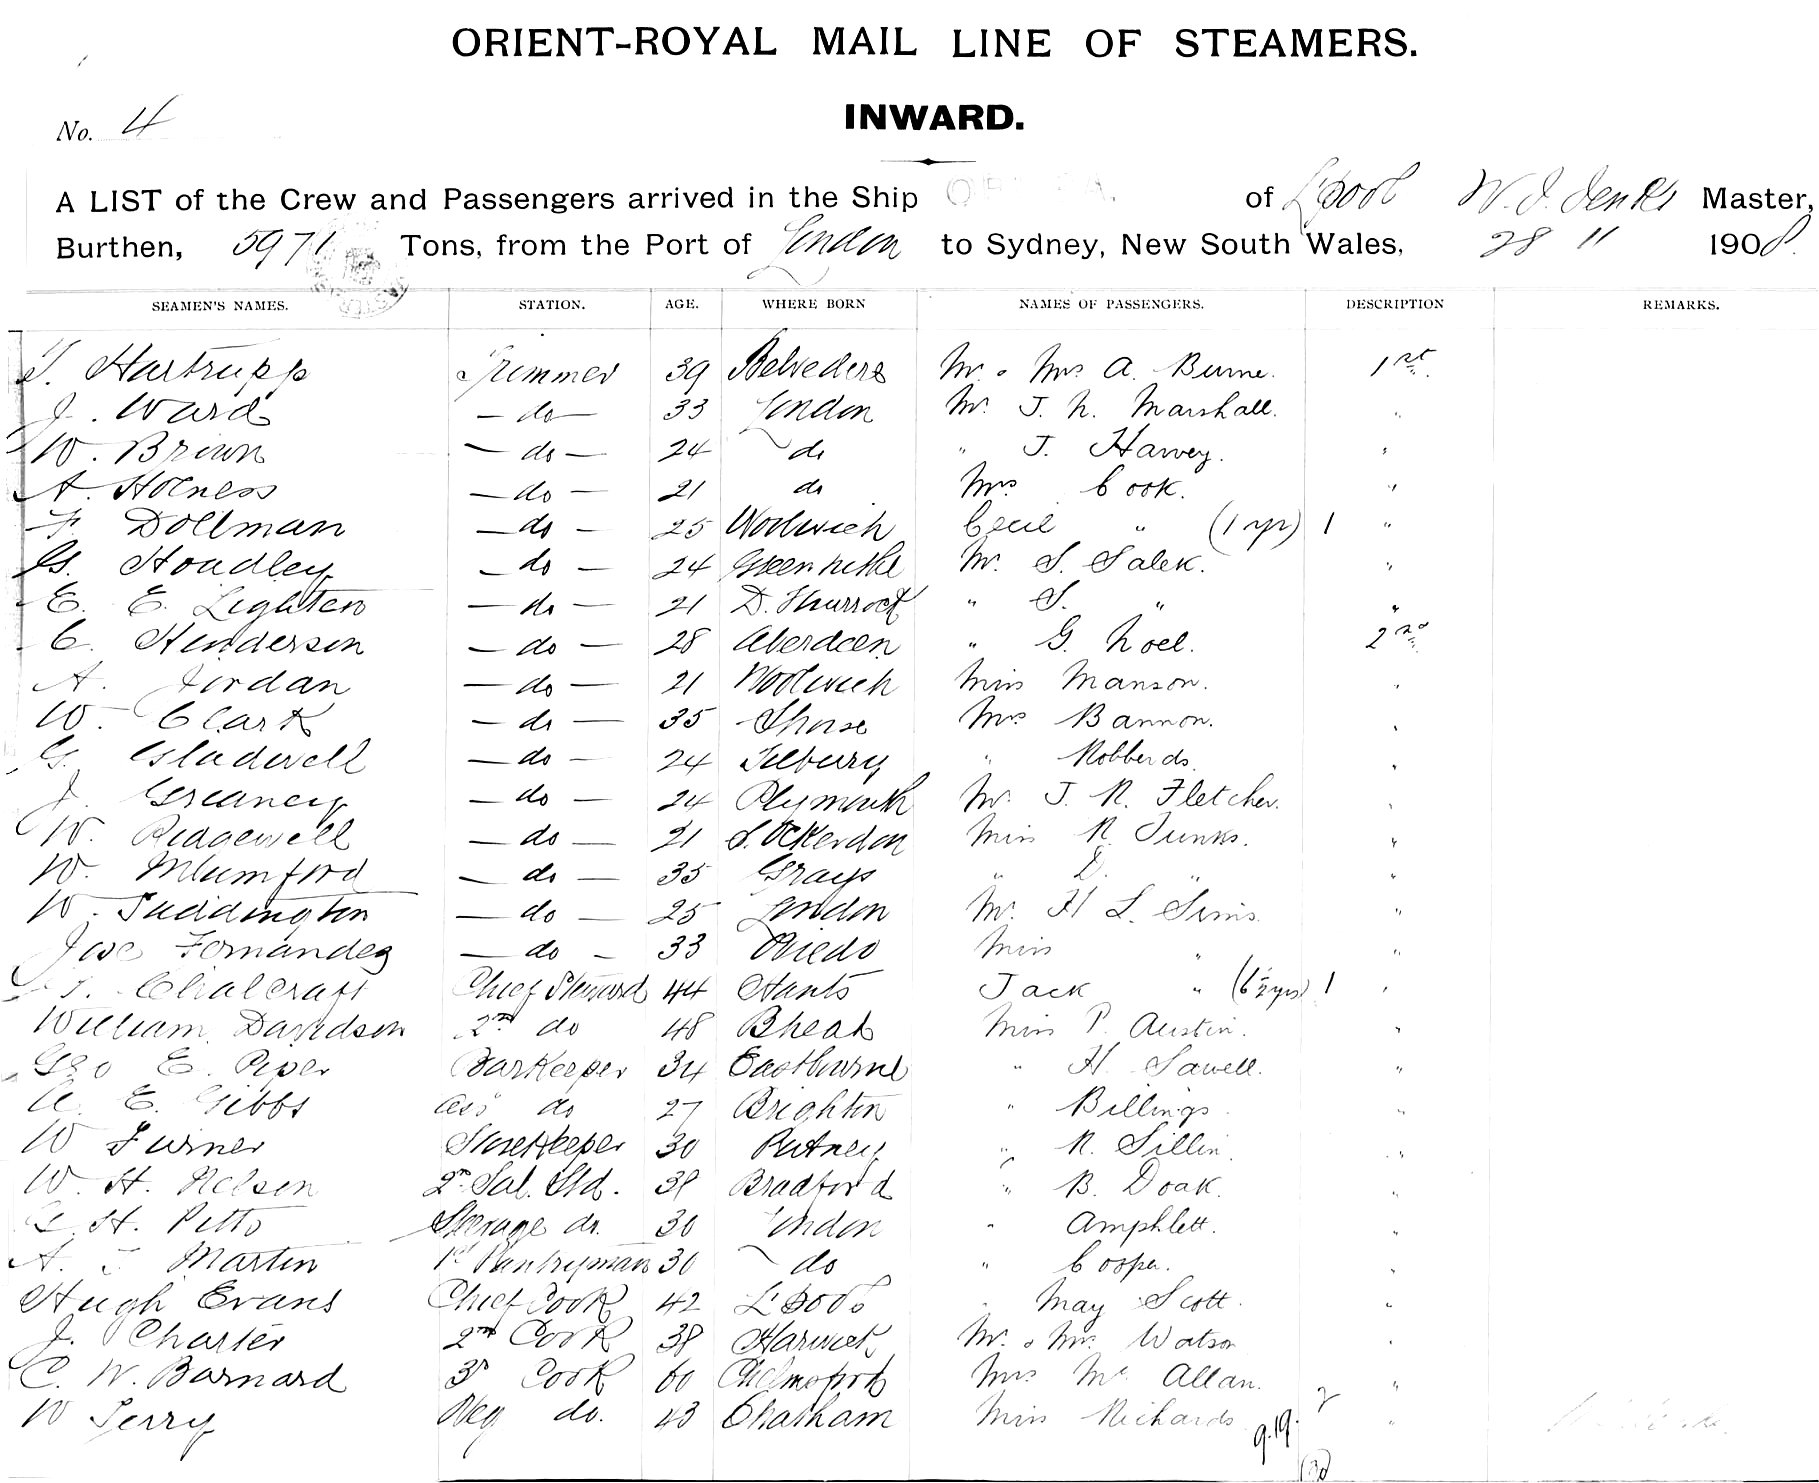 ORIENT-ROYAL MAIL LINE OF STEAMERS.
INWARD.
No. 4
A LIST of the Crew and Passengers arrived in the Ship of L'pool W. J. Jenks Master,
Burthen, 5971 Tons, from the Port of London to Sydney, New South Wales, 28 " 1908.
SEAMEN'S NAMES. STATION. AGE. WHERE BORN NAMES OF PASSENGERS. DESCRIPTION REMARKS.
T. Hartrupp Trimmer 39 Belvedere Mr. & Mrs A. Burne. 1st.
J. Ward — do — 33 London Mr. J. N. Marshall. "
W. Brown — do — 24 do " J. Harvey. "
A. Holness — do — 21 do Mrs Cook. "
F. Dollman — do — 25 Woolwich Cecil " (1 yr) 1 "
G. Hoadley — do — 24 Greenhithe Mr. S. Salek. "
E. E. Lighten — do — 21 D. Thurrock " S. " "
C. Henderson — do — 28 Aberdeen " G. Noel. 2nd.
A. Jordan — do — 21 Woolwich Miss Manson. "
W. Clark — do — 35 Mrs Bannon. "
G. Gladwell — do — 24 Tilbury " Robberds. "
J. Greaney — do — 24 Plymouth Mr. J. R. Fletcher. "
W. Ridgewell — do — 21 S. Ockerdon Miss R. Junks. "
W. Mumford — do — 35 Grays " D. " "
W. Tuddington — do — 25 London Mr. H L. Sims. "
Jose Fernandez — do — 33 Oviedo Miss " "
T. Chalcraft Chief Steward 44 Hants Jack " (6½ yrs) 1 "
William Davidson 2nd do 48 Miss P. Austin. "
Geo E. Piper Barkeeper 34 Eastbourne " H. Sawell. "
A. E. Gibbs Ass do 27 Brighton " Billings. "
W Turner Storekeeper 30 Putney " R. Sillin. "
W. H. Nelsen 2nd Sal. Std. 38 Bradford " B. Doak. "
H. Petto Steerage do. 30 London " Amphlett. "
A. Martin 1st Pantryman 30 do " Cooper. "
Hugh Evans Chief Cook 42 L'pool " May Scott. "
J. Charter 2nd Cook 38 Harwich Mr. & Mrs. Watson "
C. W. Barnard 3rd Cook 60 Chelmsford Mrs Mc Allan. "
W Terry Veg do. 43 Chatham Miss Richards 2 "
9.19.